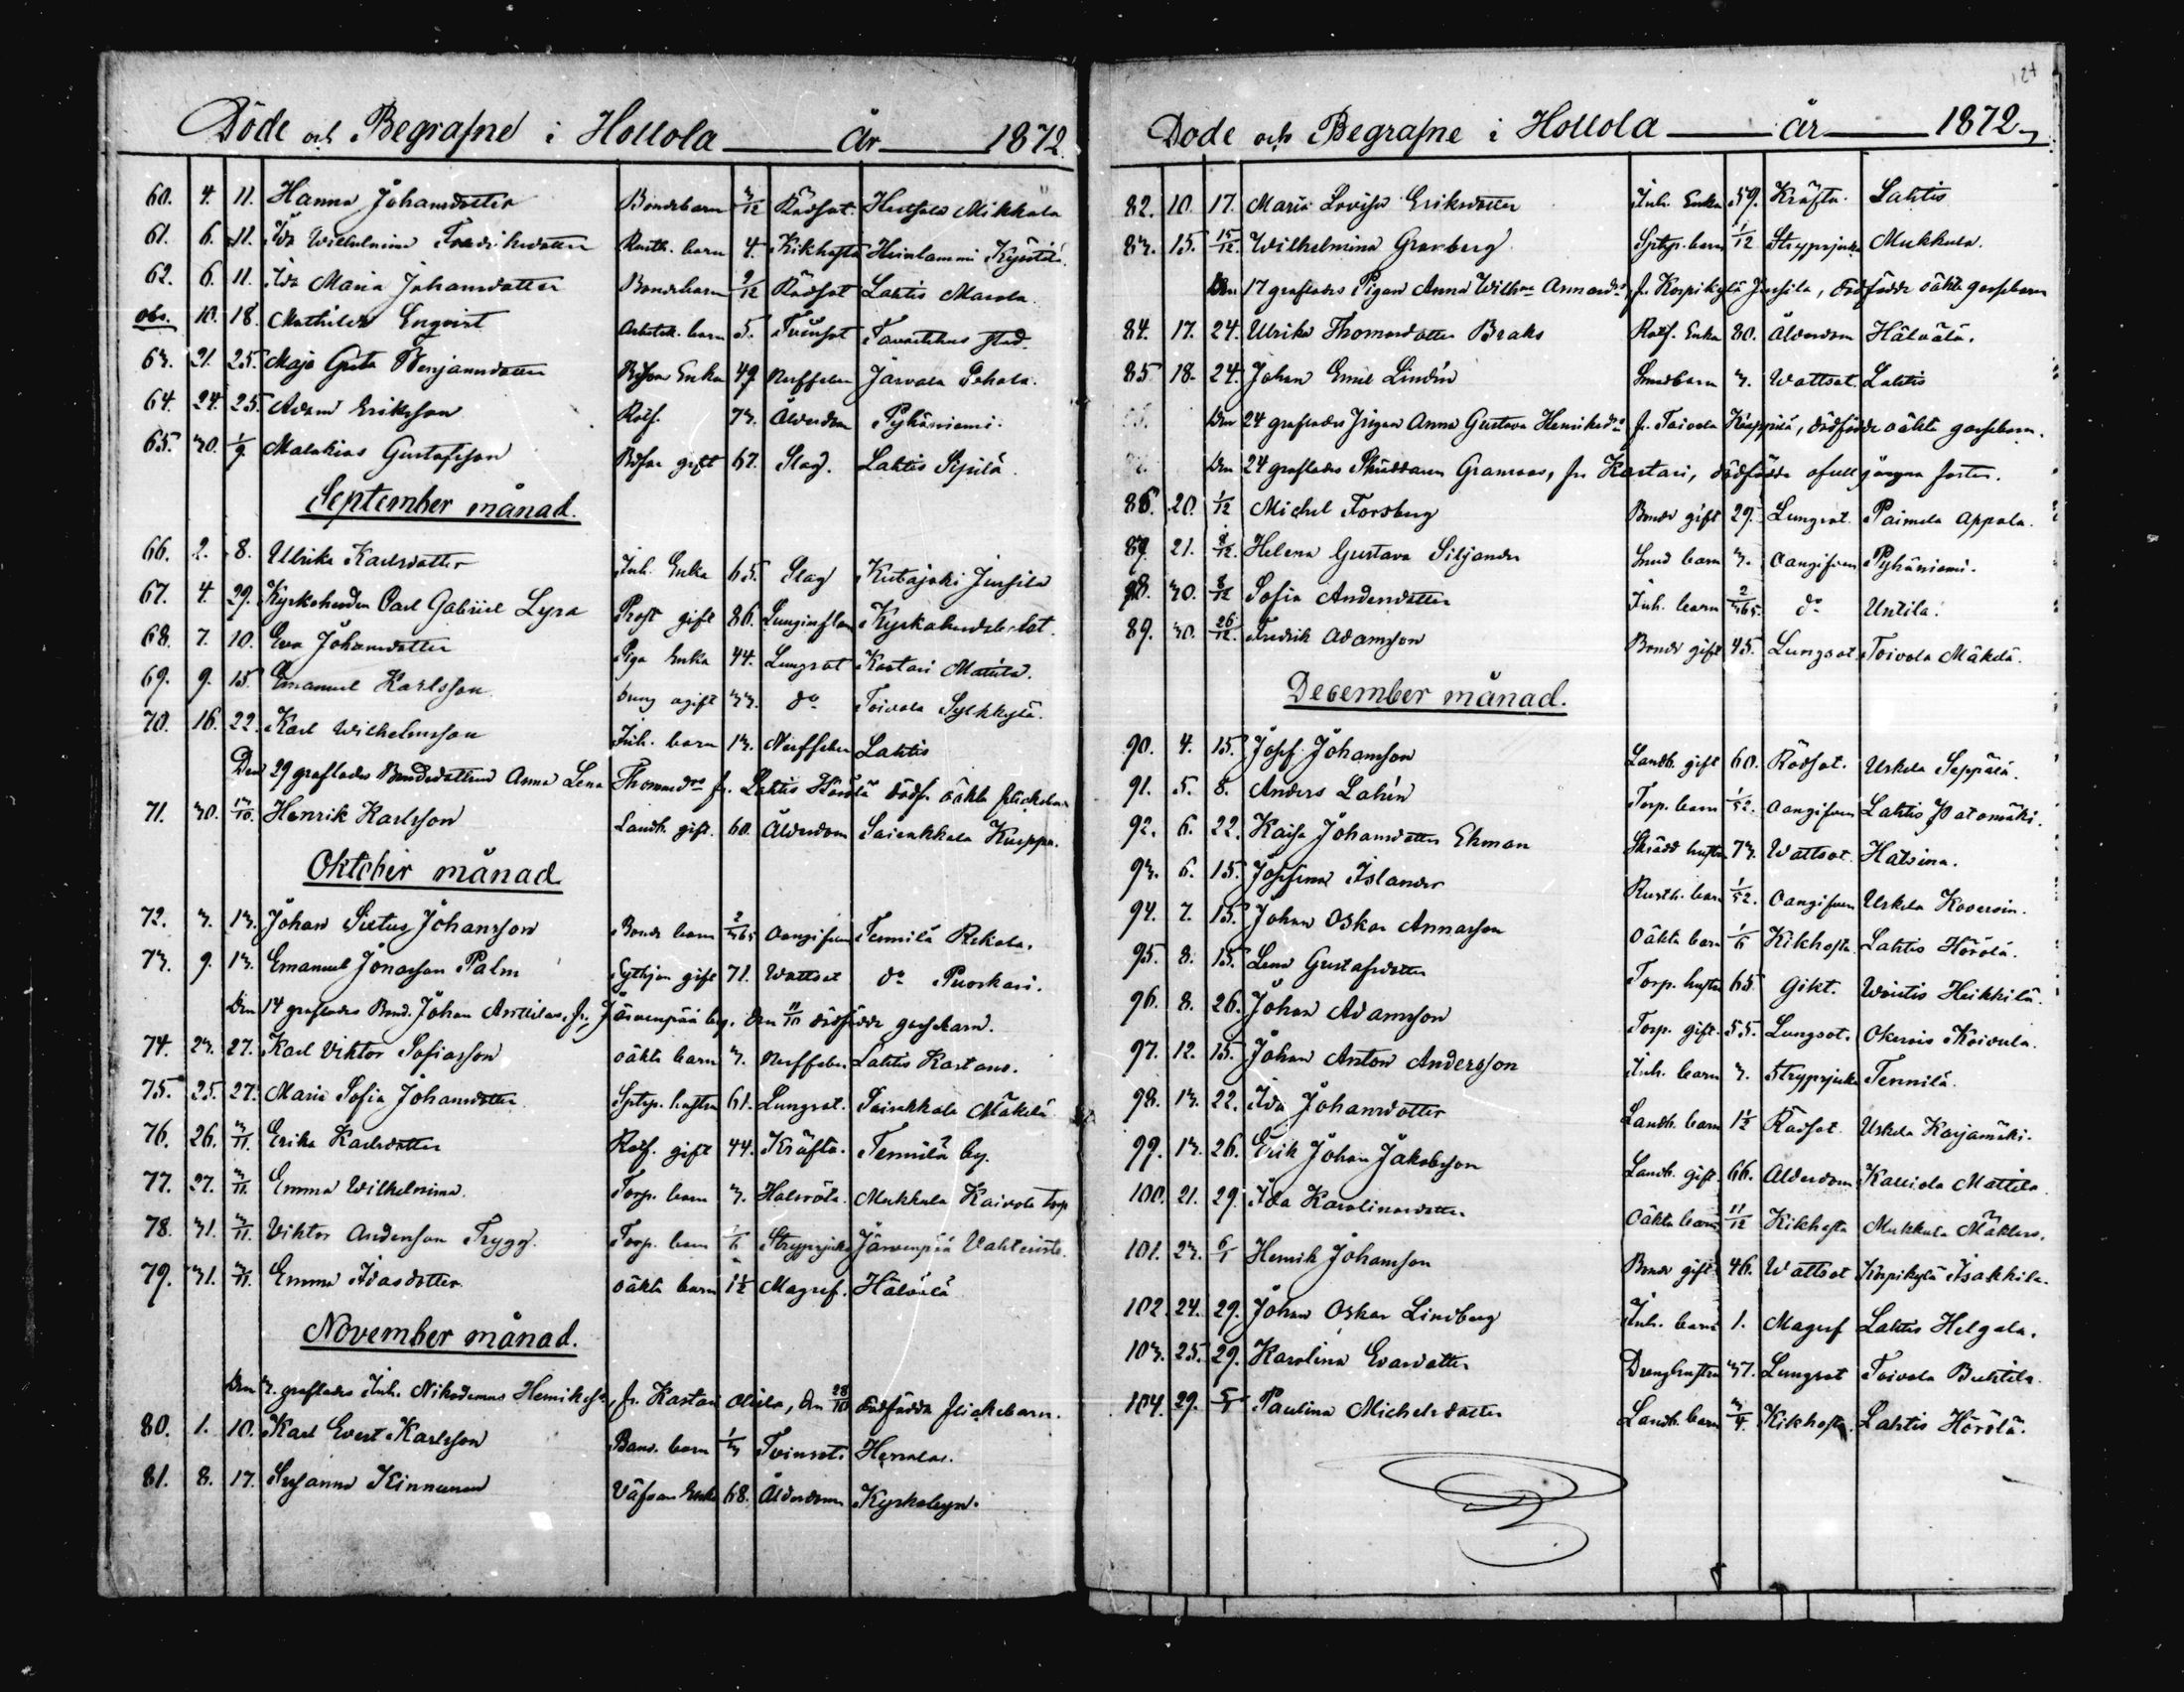 Döde och Begrafne i Hollola År 1872.
60. 4. 11. Hanna Johansdotter Bondebarn 3/12 Rödsot Hutsala Mikkola
61. 6. 11. Ida Wilhelmina Fredriksdotter Rusth. barn 4. Kikhosta Heinlammi Kyöstilä
62. 6. 11. Ida Maria Johansdotter Bondebarn 9/12 Rödsot Lahtis Marola
obs. 10. 18. Mathilda Enqvist barn 5. Tvinsot Tavastehus stad.
63. 21. 25. Maja Greta Benjamsdotter Enka 49 Nerffeber Jarvala Pekola.
64. 24. 25. Adam Eriksson Rotf. 73. Ålderdom Pyhäniemi.
65. 30. 1/9 Malakias Gustafsson gift 67. Slag. Lahtis Sipilä
September månad.
66. 2. 8. Ulrika Karlsdotter Inh. Enka 65. Slag Kutajoki Jussila
67. 4. 29. Kyrkoherden Carl Gabriel Lyra Prost gift 86. Lunginflam Kyrkoherdebolst.
68. 7. 10. Eva Johansdotter Piga Enka 44. Lungsot Kastari Mattila.
69. 9. 15. Emanuel Karlsson Dreng ogift 33. do Toivola Sylkkylä.
70. 16. 22. Karl Wilhelmsson Inh. barn 13. Nerffeber Lahtis
Den 29 graflades Bondedottren Anna Lena Thomasdrs fr. Lahtis dödf. oäkta flickebarn
71. 30. 13/10. Henrik Karlsson Landb. gift. 60. Ålderdom Sairakkala Kuppa.
Oktober månad
72. 3. 13. Johan Sixtus Johansson Bonde barn 2/365 Oangifven Tennilä Rekola.
73. 9. 13. Emanuel Jonasson Palm Sytnjon gift 71. Wattsot do Puoskari.
Den 14 graflades Bond. Johan Anttilas, fr. Järvenpää by, den 11/10 dödfödde gossebarn.
74. 23. 27. Karl Viktor Sofiasson oäkta barn 3. Nerffeber Lahtis Kartano.
75. 25. 27. Maria Sofia Johansdotter Sptp. hustru 61. Lungsot. Sairakkala Mäkelä
76. 26. 3/11. Erika Karlsdotter Rotf. gift 44. Kräfta. Tennilä by.
77. 27. 3/11. Emma Wilhelmina Torp. barn 3. Halsröta. Mukkula Kaivola torp
78. 31. 3/11. Viktor Andersson Trygg. Torp. barn 1/6 Strypsjuka Järvenpää Vahteristo.
79. 31. 3/11. Emma Idasdotter oäkta barn 1½ Magref. Hälvälä
November månad.
Den 3. graflades Inh. Nikodemus Henriksss, fr. Kastari Olkila, den 28/10 dödfödda flickebarn.
80. 1. 10. Karl Evert Karlsson Band. barn 1/3 Tvinsot Herrala.
81. 8. 17. Susanna Kinnunen Enka 68. Ålderdom Kyrkobyn.
Dode och Begrafne i Hollola år 1872
82. 10. 17. Maria Lovisa Eriksdotter Inh. Enka 59. Kräfta. Lahtis
83. 15. 15/12. Wilhelmina Granberg Sptp. barn 1/12 Strypsjuka Mukkula.
Den 17 graflades Pigan Anna Wilhna Annasds, fr. Korpikylä Jussila, dödfödde oäkta gossebarn
84. 17. 24. Ulrika Thomasdotter Braks Rotf. Enka 80. Ålderdom Hälvälä.
85 18. 24. Johan Emil Lindén Smedbarn 3. Wattsot Lahtis
Den 24 graflades Pigan Anna Gustava Henriksds fr. Toivola Käppilä, dödfödde oäkta gossebarn.
Den 24 graflades Skräddaren Granroos, fr. Kastari, dödfödde ofullgångna foster.
86. 20. 1/12 Michel Forsberg Bonde gift 29. Lungsot Paimela Appola.
87. 21. 8/12. Helena Gustava Siljander Smed barn 3. Oangifven Pyhäniemi.
88. 30. 8/12 Sofia Andersdotter Inh. barn 2/365. do Untila.
89. 30. 26/12. Fredrik Adamsson Bonde gift 45. Lungsot Toivola Mäkelä.
December månad.
90. 4. 15. Josef Johansson Landb. gift 60. Rödsot. Uskela Seppälä.
91. 5. 8. Anders Lahén Torp. barn 1/52. Oangifven Lahtis Patomäki.
92. 6. 22. Kaisa Johansdotter Ehman Skrädd hustru 73. Wattsot. Hatsina.
93. 6. 15. Josefina Islander Rusth. barn 1/52. Oangifven Uskela Kooroin.
94. 7. 15. Johan Oskar Annasson Oäkta barn 1/6 Kikhosta Lahtis Hörölä.
95. 8. 15. Lena Gustafsdotter Torp. hustru 65. Gikt. Heikkilä.
96. 8. 26. Johan Adamsson Torp. gift. 55. Lungsot. Okerois Koivula.
97. 12. 15. Johan Anton Andersson Inh. barn 3. Strypsjuka Tennilä
98. 13. 22. Ida Johansdotter Landb. barn 1½ Rödsot Uskela Karjamäki.
99. 13. 26. Erik Johan Jakobsson Landb. gift. 66. Ålderdom Kalliola Mattila
100. 21. 29. Ida Karolinasdotter Oäkta barn 11/12 Kikhosta Mukkula Mäkelä.
101. 23. 6/1 Henrik Johansson Bonde gift 46. Wattsot Korpikylä Isakkila.
102. 24. 29. Johan Oskar Lindberg Inh. barn 1. Magref Lahtis Helgala.
103. 25. 29. Karolina Evasdotter Drenghustru 37. Lungsot Toivola
104. 29. 5/1 Paulina Michelsdotter Landb. barn 3/4. Kikhosta. Lahtis Hörölä.